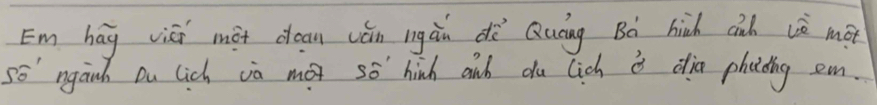 Em hãy viết một đoạn văn ngắn để Quảng Bá hình ảnh về một
số ngành Du lịch và một số hình ảnh du lịch ở địa phương em.